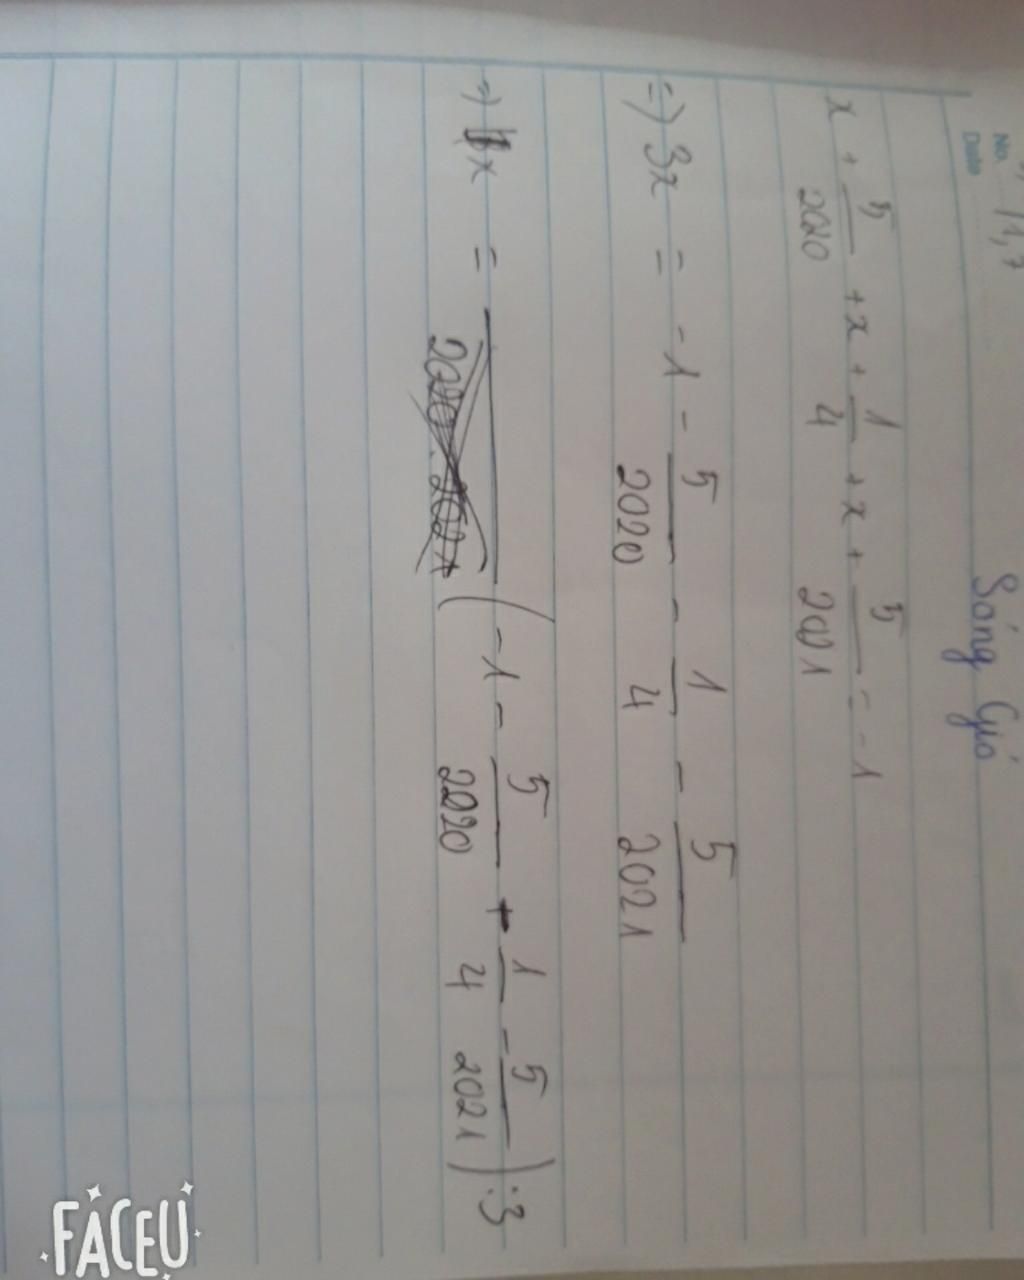 No.
Date
11, 7
Sóng Gió
x + 5/2020 + x + 1/4 + x + 5/2021 = -1
=) 3x = -1 - 5/2020 - 1/4 - 5/2021
=) x = (-1 - 5/2020 - 1/4 - 5/2021) : 3
FACEU